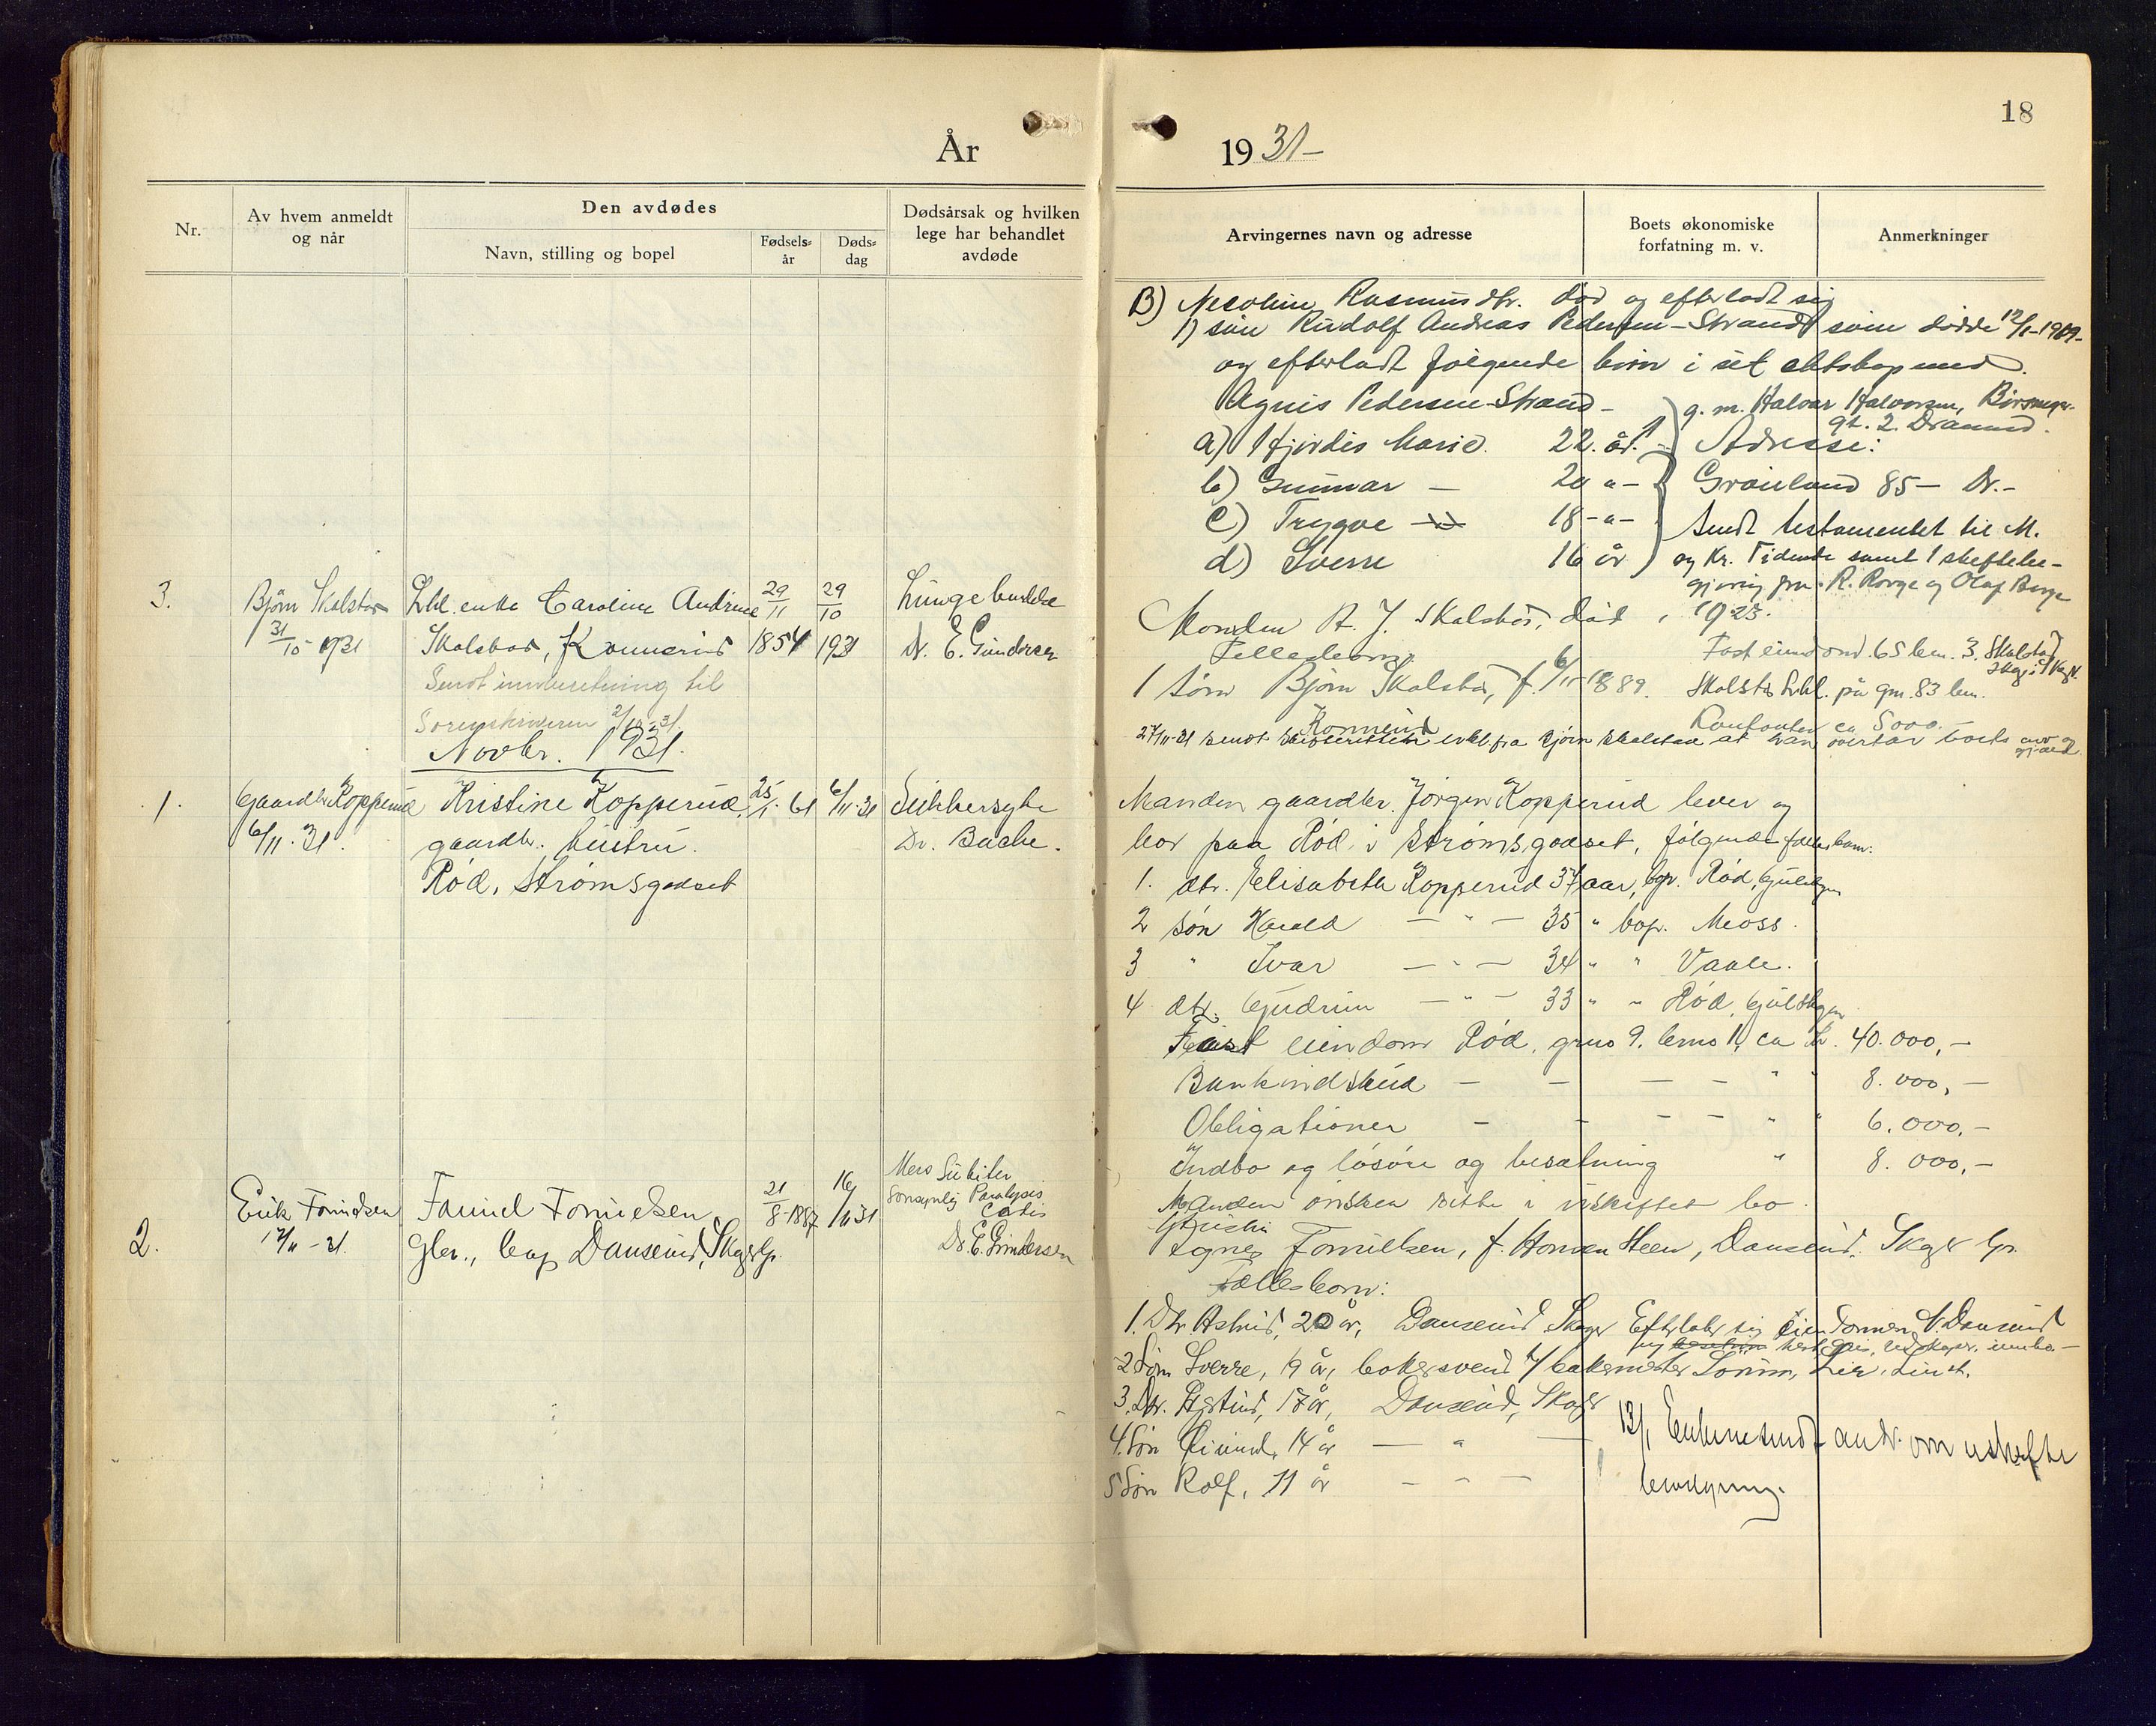 18
År
19 31-
Nr.
Av hvem anmeldt
og når
Den avdødes
Navn, stilling og bopel
Fødsels-
år
Døds-
dag
Dødsårsak og hvilken
lege har behandlet
avdøde
Arvingernes navn og adresse
Boets økonomiske
forfatning m. v.
Anmerkninger
B) Rasmusdtr. død og efterlodt sig
1) søn Rudolf Andreas Pedersen-Strand som døde 12/1-1909-
og efterlodt følgende børn i sit ektskap med
Agnes Pedersen-Strand - g. m. Halvar Halvorsen,
gt. 2. Drammd.
a) Hjørdis Marie. 22. år. Adresse:
b) Gunnar - 20 " - Grønland 85- Dr.-
c) Trygve 18 - " - Sendt testamentet til M.
d) Sverre 16 år og Kr. Tidende samt 1
R. Borge og Olaf Borge
3.
Bjørn Skalstad
31/10-1931
enke Caroline Andrine
Skalstad, Konnerud
Sendt innberetning til
Sorenskriveren 2/11-31.
29/11
1854
29/10
1931
Lungebetendelse
Dr. E. Gundersen
Manden A. J. Skalstad, død i 1923.
Fellesbarn:
1 sønn Bjørn Skalstad, f. 6/11-1889.
Konnerud
Fast eiendom. 65 bnr. 3. Skalstad
Skoger
Skalstad på gnr. 83 bnr.
ca 5000.-
27/11-31 sendt fra Bjørn Skalstad at han overtar boets arv og
gjæld
Novbr. 1931.
1.
Gaardbr. Kopperud
6/11. 31.
Kristine Kopperud,
gaardbr. hustru.
Rød, Strømsgodset
25/1. 61
6/11-31
Sukkersyke
Dr. Bache.
Manden gaardbr. Jørgen Kopperud lever og
bor paa Rød i Strømsgodset, følgende fællesbarn:
1. dtr. Elisabeth Kopperud 37 aar, bop. Rød, Gulskogen
2 søn Harald - " - 35 " bop. Moss.
3 " Ivar - " - 34 " " Vaale.
4 dtr. Gudrun - " - 33 " " Rød, Gulskogen
Fast eiendom Rød, gno 9. bno 1, ca kr. 40.000,-
Bankindskud - - - - " " 8.000,-
Obligationer - - - - " " 6.000,-
Indbo og løsøre og besætning " 8.000,-
Manden ønsker sitte i uskiftet bo.
2.
Erik
17/11-31.
Gbr., bop Danserud, Skoger
21/8-1887
16/11 31
Paralysis
Cordis
Dr. E. Gundersen
Agnes, f. Hansen Heen, Danserud, Skoger
Fællesbarn:
1. Dtr. Astrid, 20 år, Danserud Skoger Efterlater sig eiendommen Danserud
2 Søn Sverre, 19 år, bakersvend h/ bakermester Lier.
3. Dtr. 17 år, Danserud, Skoger
4. Søn 14 år - " -
5 Søn Rolf, 11 år - " -
13/1 Enken sendt om uskifte
bevilgning.